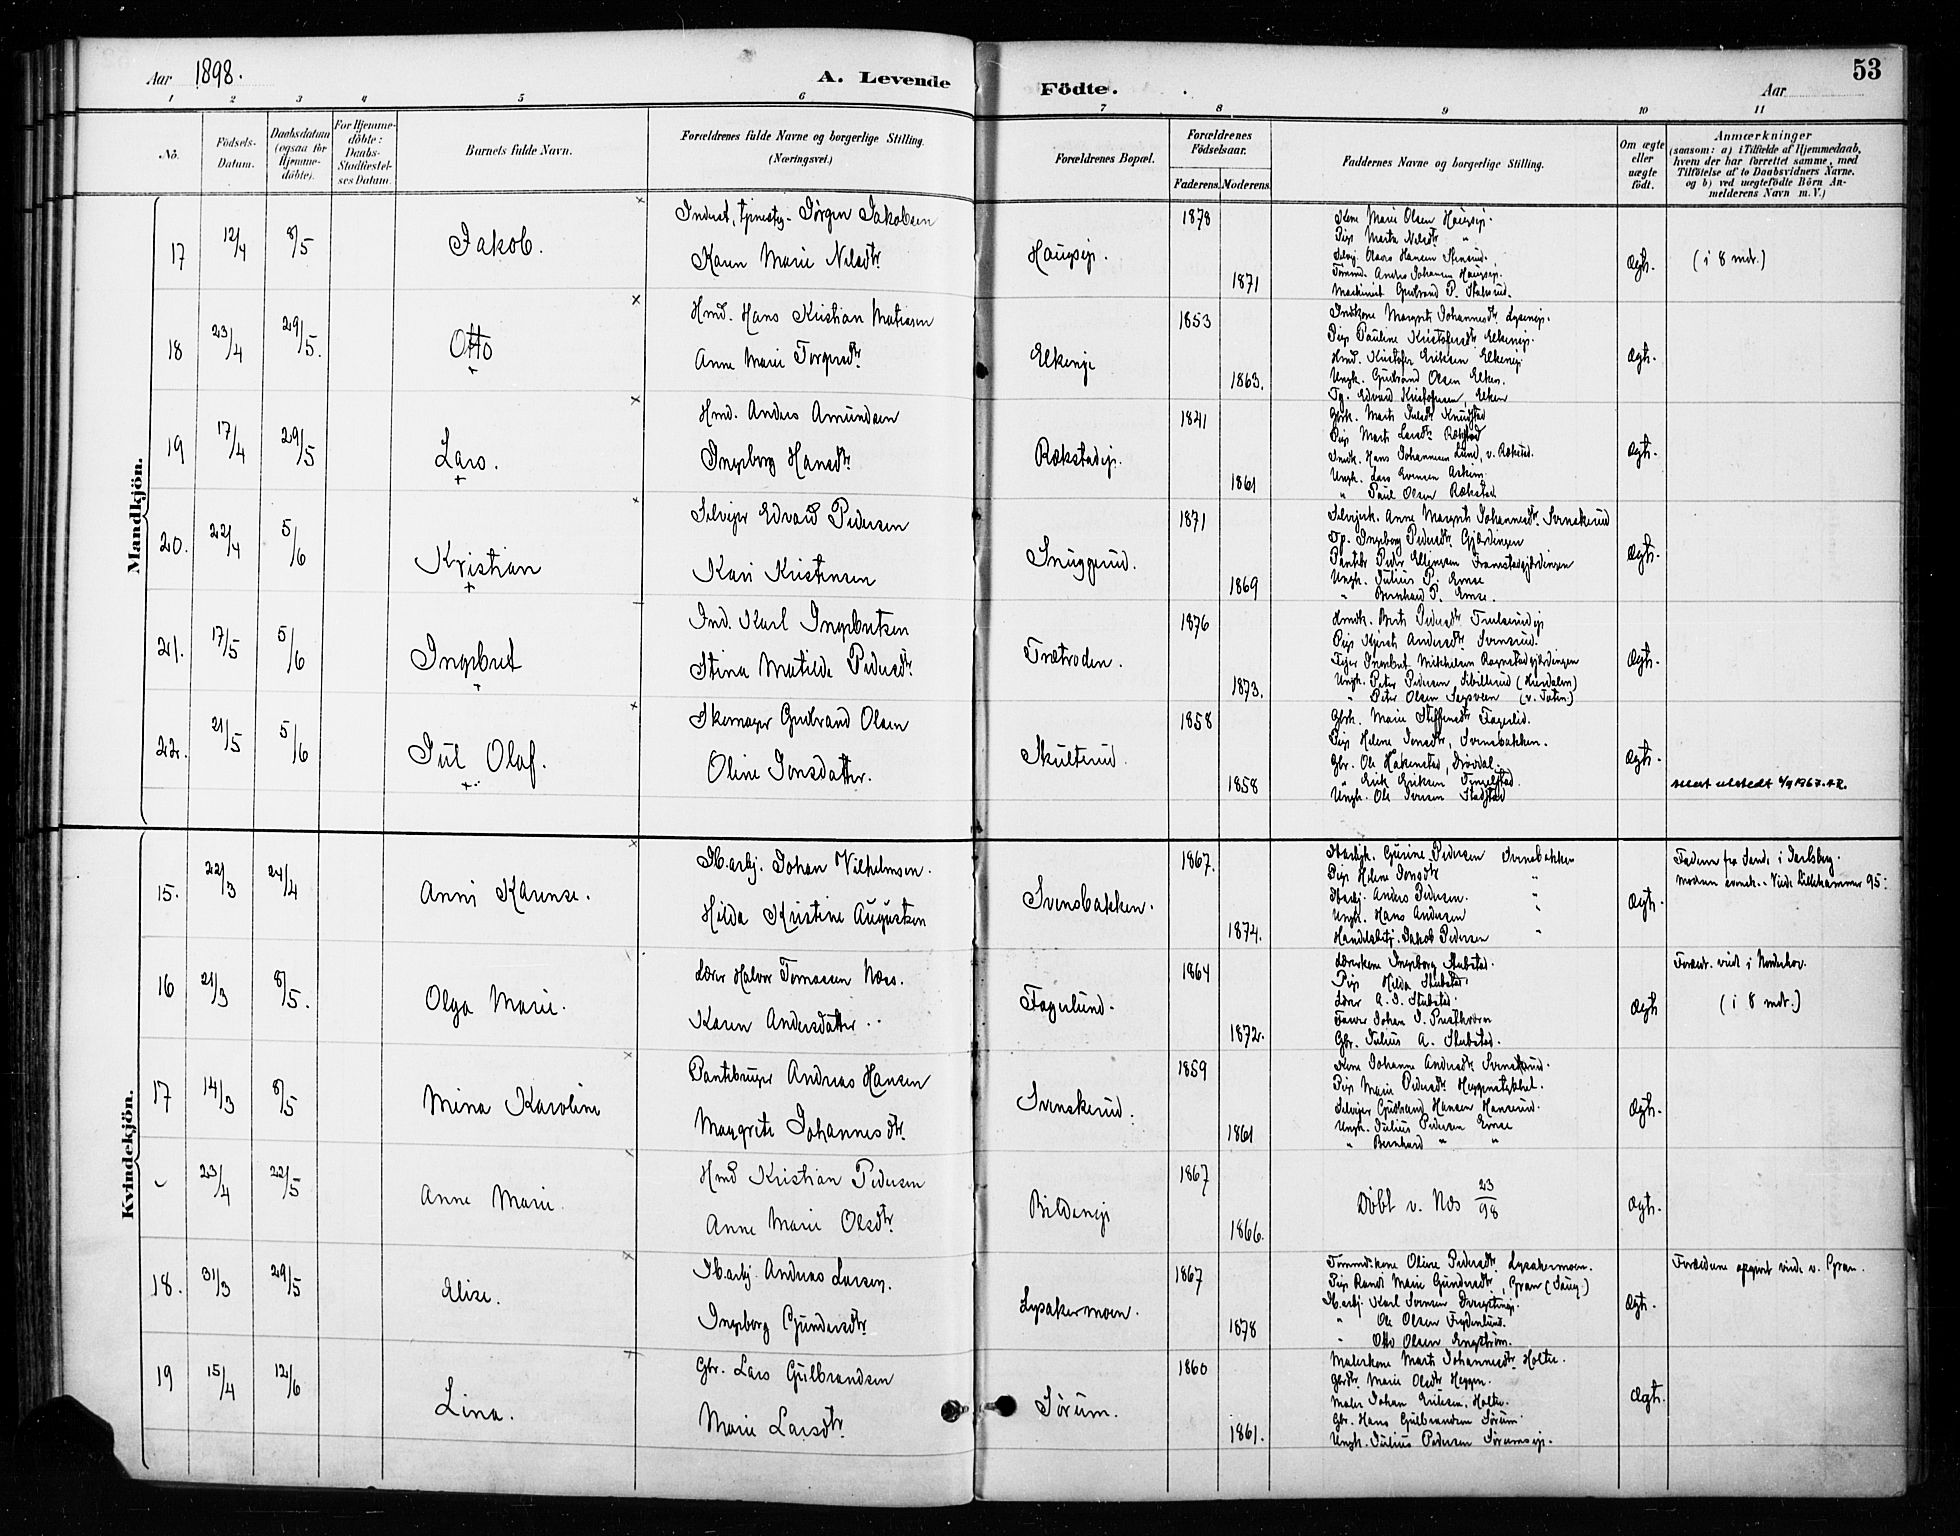 Aar 1898.
A. Levende Födte.
Aar
53
1 2 3 4 5 6 7 8 9 10 11
No.
Födsels-Datum.
Daabsdatum (ogsaa for Hjemme-döbte).
For Hjemme-döbte: Daabs-Stadfæstel-ses Datum.
Barnets fulde Navn.
Forældrenes fulde Navne og borgerlige Stilling. (Næringsvei.)
Forældrenes Bopæl.
Forældrenes Födselsaar.
Faderens. Moderens.
Faddernes Navne og borgerlige Stilling.
Om ægte eller uægte födt.
Anmærkninger
(saasom: a) i Tilfælde af Hjemmedaab, hvem der har forrettet samme, med Tilföielse af to Daabsvidners Navne. og b) ved uægtefödte Börn An-melderens Navn m. V.)
Mandkjön.
17 12/4 8/5 Jakob.
Jørgen Jakobsen
Karen Marie Nilsdtr.
Haugsej. 1878 1871
Kone Marie Olsen Haugsej.
Pige Marta Nilsdtr "
Tømmd. Anders Johansen Haugsej.
Maskinist Gudbrand P.
Ægt. (i 8 mdr.)
18 23/4 29/5. Otto
Hmd. Hans Kristian Matisen
Anne Marie Torgersdtr
Elkenej 1853 1863.
Johannesdtr Lysenej.
Pige Pauline Kristofersdtr Elkenej.
Hmd. Kristofer Eriksen Elkenej
Ungk. Gudbrand Olsen Elken.
Edvard Kristofersen, Elken
Ægt.
19 17/4 29/5 Lars.
Hmd. Anders Amundsen
Ingeborg Hansdtr.
Rækstadej. 1841 1861
Pige Marte Larsdtr Rækstad
Hans Johannesen Lund, v. Rækstad.
Ungk. Lars Evensen Askim.
" Paul Olsen Rækstad
Ægt.
20. 22/4 5/6 Kristian
Selvejer Edvard Pedersen
Kari Kristensen
Snuggerud. 1871 1869
Selvejerk. Anne Margrete Johannesdtr. Svenskerud
Ingeborg Pedersdtr. Gjærdingen
Peder Ellingsen
Ungk. Julius P. Emse
" Bernhard P. Emse.
Ægt.
21. 17/5 5/6 Ingebret
Ind. Karl Ingebretsen
Stina Matilde Pedersdtr
Trætroden. 1876 1873.
Pige Andersdtr. Svensrud.
Ingebret Mikkelsen
Ungk. Peter Pedersen (Hurdalen)
" Peter Olsen (v. Toten.)
Ægt.
22. 21/5 5/6 Jul Olaf.
Skomager Gudbrand Olsen
Oline Jonsdatter.
Skulterud. 1858 1858
Gbrk. Marie Steffensdtr Fagerlid.
Pige Helene Jonsdtr, Svensbakken.
Gbr. Ole Hakenstad,
" Erik Eriksen Tingelstad.
Ungk. Ole Iversen
Ægt.
attest utstedt
Kvindekjön.
15. 22/3 24/4 Anni Karense.
Johan Vilhelmsen.
Hilda Kristine Augustsen
Svensbakken. 1867. 1874.
Gurine Pedersen Svensbakken
Pige Helene Jonsdtr "
Anders Pedersen. "
Ungk. Hans Andersen "
Handelsbetj. Jakob Pedersen "
Ægt.
Faderen fra Sand, i Jarlsberg.
Moderen svensk. Viede Lillehammer 95.
16 21/3 8/5. Olga Marie.
Lærer Halvor Tomassen Næss.
Karen Andersdatter
Fagerlund. 1864 1872.
Lærerkone Ingeborg Stubstad.
Pige Hilda Stubstad.
Lærer A. J. Stubstad.
Farver Johan J. Prestkværn
Gbr. Julius A. Stubstad.
Ægt
Foræld. viede i Norderhov.
(i 8 mdr.)
17 14/3 8/5 Mina Karoline
Pantebruger Andreas Hansen
Margrete Johannesdtr.
Svenskerud. 1859 1861
Kone Johanne Andersdtr Svenskerud.
Pige Marie Pedersdtr
Selvejer Gudbrand Hansen Hanserud.
Ungk. Julius Pedersen Emse
" Bernhard " "
Ægt.
23/4 22/5 Anne Marie.
Hmd Kristian Pedersen
Anne Marie Olsdtr.
Bildenej 1867 1866.
Døbt v. Næs 23/98
Ægt.
18. 31/3 29/5 Elise.
Andreas Larsen,
Ingeborg Gundersdtr
Lysakermoen. 1867 1878
Tømmd.kone Oline Pedersdtr. Lysakermoen.
Pige Randi Marie Gundersdtr, Gran
Karl Svensen
" Ole Olsen Frydenlund.
" Otto Olsen Engström.
Ægt.
Forældrene opgivet viede v. Gran.
19 15/4 12/6 Lina.
Gbr. Lars Gulbrandsen
Marie Larsdtr.
Sørum. 1860 1861.
Malerkone Marte Johannesdtr. Holter.
Gbrdtr. Marie Olsdtr Heggen.
Maler Johan Eriksen, Holte.
Gbr. Hans Gulbrandsen Sørum
Ungk. Julius Pedersen Sørumsej.
Ægt.